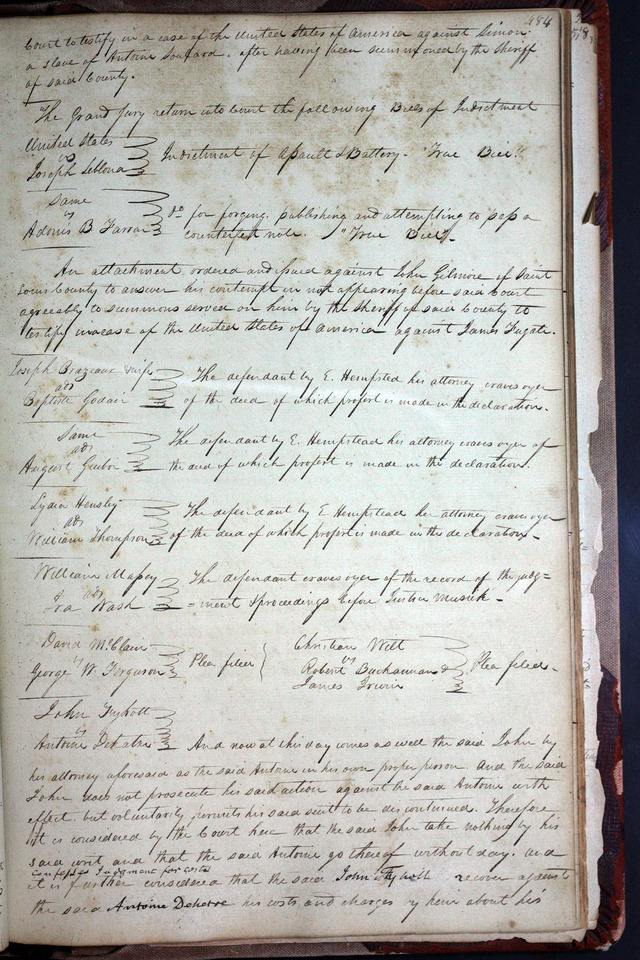 484
Court to testify in a case of the United States of America against Simon
a slave of Antoine Soulard. after having been summoned by the Sheriff
of said County.
The Grand Jury return into Court the following Bills of Indictment
United States
vs
Joseph Leblond
Indictment of Assault & Battery. "True Bill".
Same
vs
Adonis B Farrar
do for forging, publishing and attempting to pass a
counterfeit note. "True Bill".
An attachment ordered and issued against John Gilmore of Saint
Louis County to answer his contempt in not appearing before said Court
agreeably to summons served on him by the Sheriff of said County to
testify in a case of the United States of America against James Fugate.
Joseph Brazeaux & wife
ads
Baptiste Godair
The defendant by E. Hempsted his attorney craves oyer
of the deed of which profert is made in the declaration.
Same
ads
August
The defendant by E. Hempstead his attorney craves oyer of
the deed of which profert is made in the declaration.
Lydia Hensley
ads
William Thompson
The defendant by E Hempstead her attorney craves oyer
of the deed of which profert is made in the declaration
William Massey
ads
Ira Nash
The defendant craves oyer of the record of the judg=
=ment & proceedings before Justice Musick
David McClain
vs
George W. Ferguson
Plea filed
Christian Witt
vs
Robert Buchannan &
James Irwin
Plea filed
John
vs
Antoine Dehetre
And now at this day comes as well the said John by
his attorney aforesaid as the said Antoine in his own proper person. And the said
John does not prosecute his said action against the said Antoine with
effect. but voluntarily permits his said suit to be discontinued. Therefore
it is considered by the Court here that the said John take nothing by his
said writ and that the said Antoine go thereof without day. and
confessed Judgment for costs
it is further considered that the said John recover against
the said Antoine Dehetre his costs and charges by him about his